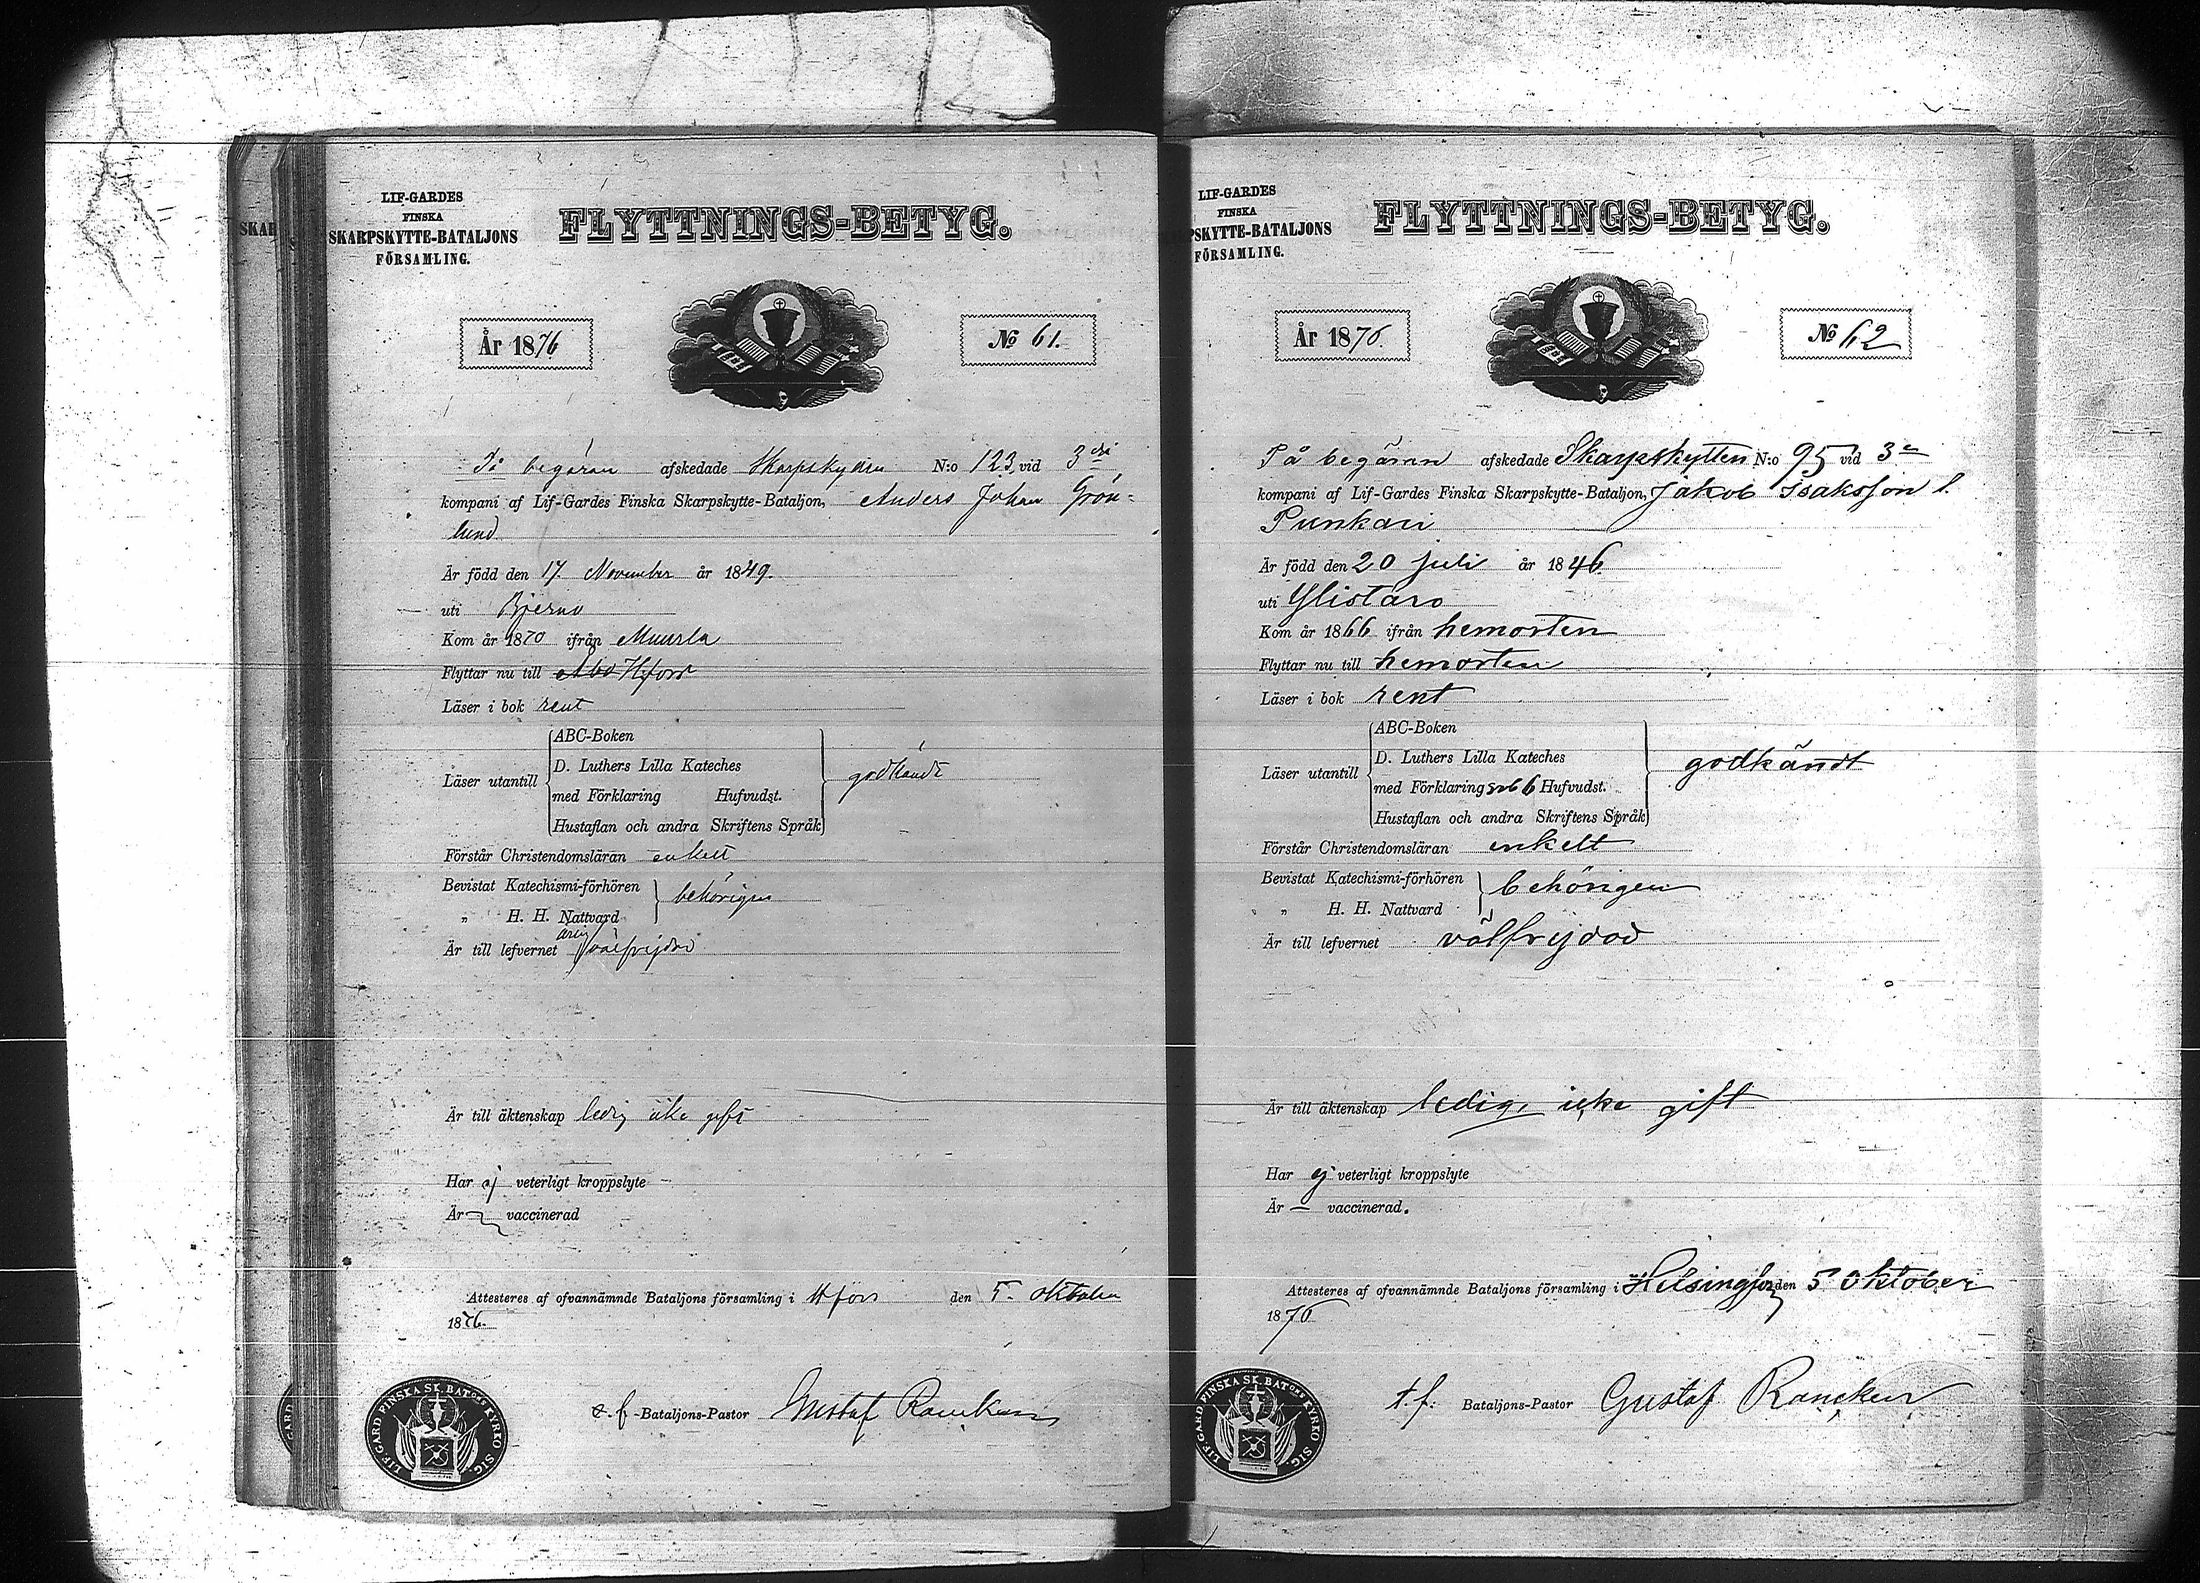 SKAR
LIF-GARDES
FINSKA
SKARPSKYTTE-BATALJONS
FÖRSAMLING.
FLYTTNINGS-BETYG.
År 1876
No 61.
På begäran afskedade Skarpskytten N:o 123 vid 3dje
kompani af Lif-Gardes Finska Skarpskytte-Bataljon, Anders Johan Grön-
lund
Är född den 17 November år 1849.
uti Bjerno
Kom år 1870 ifrån Muurla
Flyttar nu till Åbo H:fors
Läser i bok rent
Läser utantill
ABC-Boken
D. Luthers Lilla Kateches
med Förklaring Hufvudst.
Hustaflan och andra Skriftens Språk
godkändt
Förstår Christendomsläran enkelt
Bevistat Katechismi-förhören
„ H. H. Nattvard
behörigen
Är till lefvernet välfrejdad
Är till äktenskap ledig icke gift
Har ej veterligt kroppslyte
Är — vaccinerad
Attesteres af ofvannämnde Bataljons församling i H:fors den 5 Oktober
1876.
t. f. Bataljons-Pastor Gustaf Rancken
LIF. GARD. FINSKA SK. BATONS KYRKO SIG.
LIF-GARDES
FINSKA
PSKYTTE-BATALJONS
FÖRSAMLING.
FLYTTNINGS-BETYG.
År 1876.
No 62
På begäran afskedade Skarpskytten N:o 95 vid 3e
kompani af Lif-Gardes Finska Skarpskytte-Bataljon, Jakob Isaksson l.
Punkari
Är född den 20 Juli år 1846
uti Ylistaro
Kom år 1866 ifrån hemorten
Flyttar nu till hemorten
Läser i bok rent
Läser utantill
ABC-Boken
D. Luthers Lilla Kateches
med Förklaring Hufvudst.
Hustaflan och andra Skriftens Språk
godkändt
Förstår Christendomsläran enkelt
Bevistat Katechismi-förhören
„ H. H. Nattvard
behörigen
Är till lefvernet välfrejdad
Är till äktenskap ledig, icke gift
Har ej veterligt kroppslyte
Är — vaccinerad.
Attesteres af ofvannämnde Bataljons församling i Helsingfors den 5 Oktober
1876
t. f. Bataljons-Pastor Gustaf Rancken
LIF. GARD. FINSKA SK. BATONS KYRKO SIG.